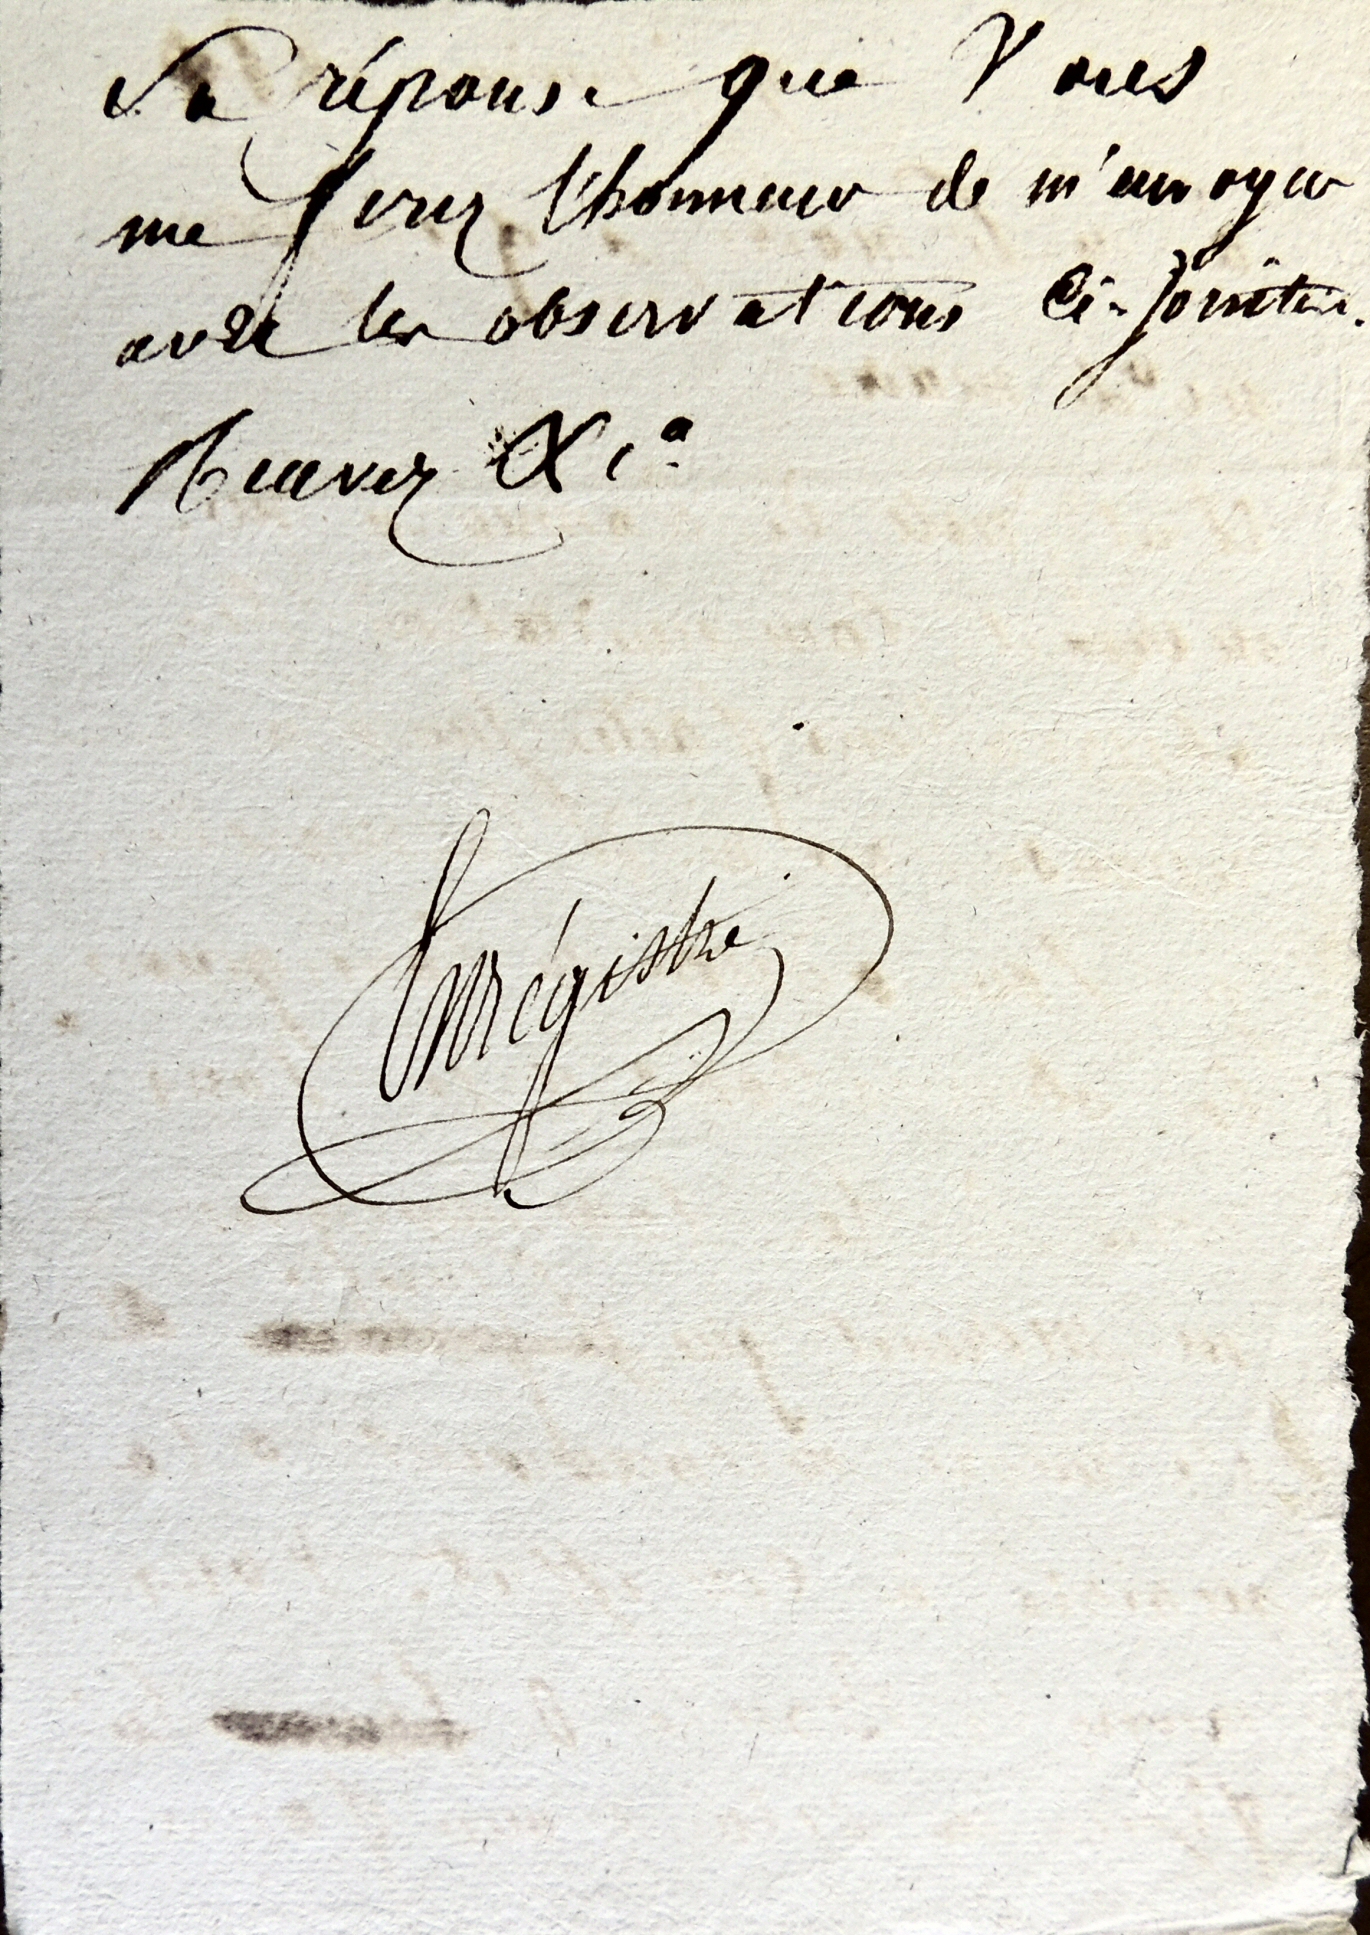 La réponse que Vous
me ferez l'honneur de m'envoyer
avec les observations Ci-jointes.
Recevez &c.a
Enrégistré